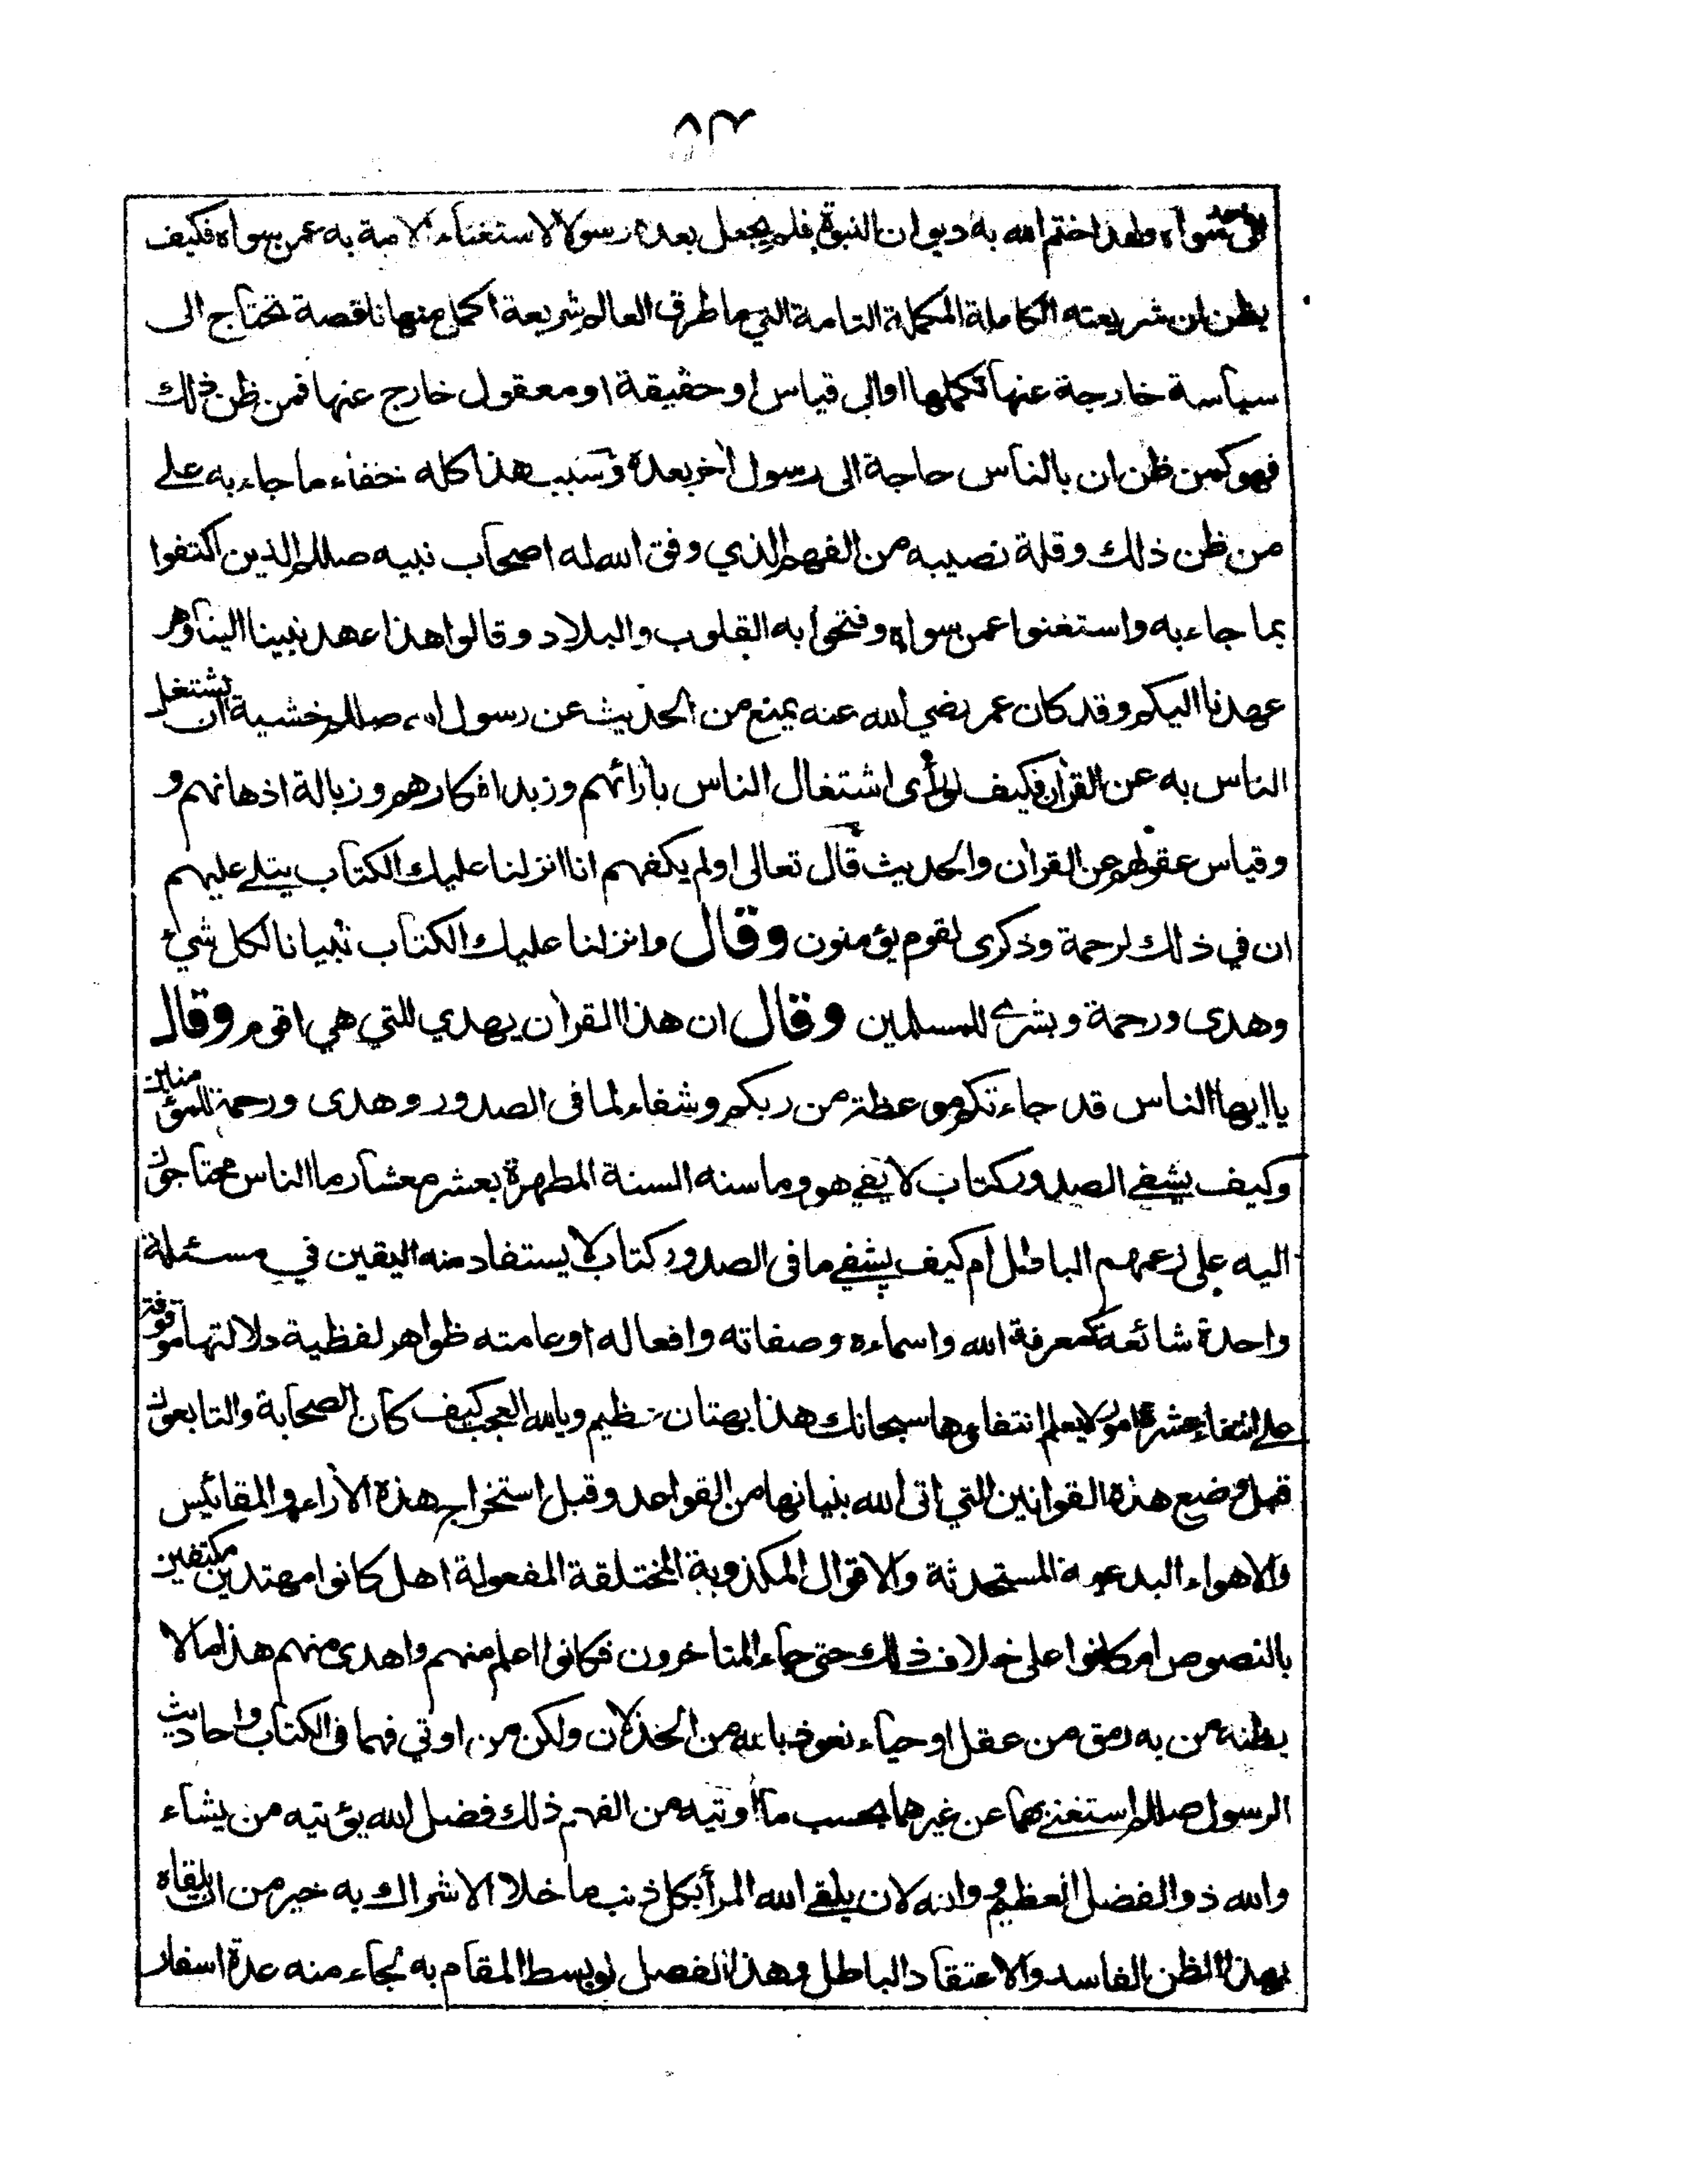 ٨٣
الى احد سواه ولهذا ختم الله به ديوان النبوة فلم يجعل بعده رسولا لاستغناء الامة به عمن سواه فكيف
يظن ان شريعته الكاملة المكملة التامة التي ما طرق العالم شريعة اكمل منها ناقصة تحتاج الى
سياسة خارجة عنها تكملها او الى قياس او حقيقة او معقول خارج عنها فمن ظن ذلك
فهو كمن ظن ان بالناس حاجة الى رسول اخر بعده وسبب هذا كله خفاء ما جاء به على
من ظن ذلك وقلة نصيبه من الفهم الذي وفق الله له اصحاب نبيه صللم الذين اكتفوا
بما جاء به واستغنوا عمن سواه وفتحوا به القلوب والبلاد وقالوا هذا عهد نبينا الينا وهو
عهدنا اليكم وقد كان عمر رضي الله عنه يمنع من الحديث عن رسول الله صللم خشية ان يشتغل
الناس به عن القرآن فكيف لو رأى اشتغال الناس بآرائهم وزبد افكارهم وزبالة اذهانهم و
وقياس عقولهم عن القرآن والحديث قال تعالى اولم يكفهم انا انزلنا عليك الكتاب يتلى عليهم
ان في ذلك لرحمة وذكرى لقوم يؤمنون وقال وانزلنا عليك الكتاب تبيانا لكل شيء
وهدى ورحمة وبشرى للمسلمين وقال ان هذا القرآن يهدي للتي هي اقوم وقال
يا ايها الناس قد جاءتكم موعظة من ربكم وشفاء لما في الصدور وهدى ورحمة للمؤمنين
وكيف يشفي الصدور كتاب لا يفي هو وما سنه السنة المطهرة بعشر معشار ما الناس محتاجون
اليه على زعمهم الباطل ام كيف يشفي ما في الصدور كتاب لا يستفاد منه اليقين في مسئلة
واحدة شائعة كمعرفة الله واسماءه وصفاته وافعاله او عامته ظواهر لفظية دلالتها موقوفة
على انتفاء عشرة امور لا يعلم انتفاءها سبحانك هذا بهتان عظيم ويا لله العجب كيف كان الصحابة والتابعون
قبل وضع هذه القوانين التي اتى الله بنيانها من القواعد وقبل استخراج هذه الآراء والمقائيس
والاهواء البدعية المستحدثة والاقوال المكذوبة المختلقة المفعولة اهل كانوا مهتدين مكتفين
بالنصوص ام كانوا على خلاف ذلك حتى جاء المتاخرون فكانوا اعلم منهم واهدى منهم هذا ما لا
يظنه من به رمق من عقل او حياء نعوذ بالله من الخذلان ولكن من اوتي فهما في الكتاب واحاديث
الرسول صللم استغنى بهما عن غيرهما بحسب ما اوتيه من الفهم ذلك فضل الله يؤتيه من يشاء
والله ذو الفضل العظيم وانه لان يلقى الله المرأ بكل ذنب ما خلا الاشراك به خير من ان يلقاه
بهذا الظن الفاسد والاعتقاد الباطل وهذا الفصل لو بسط المقام به لجاء منه عدة اسفار